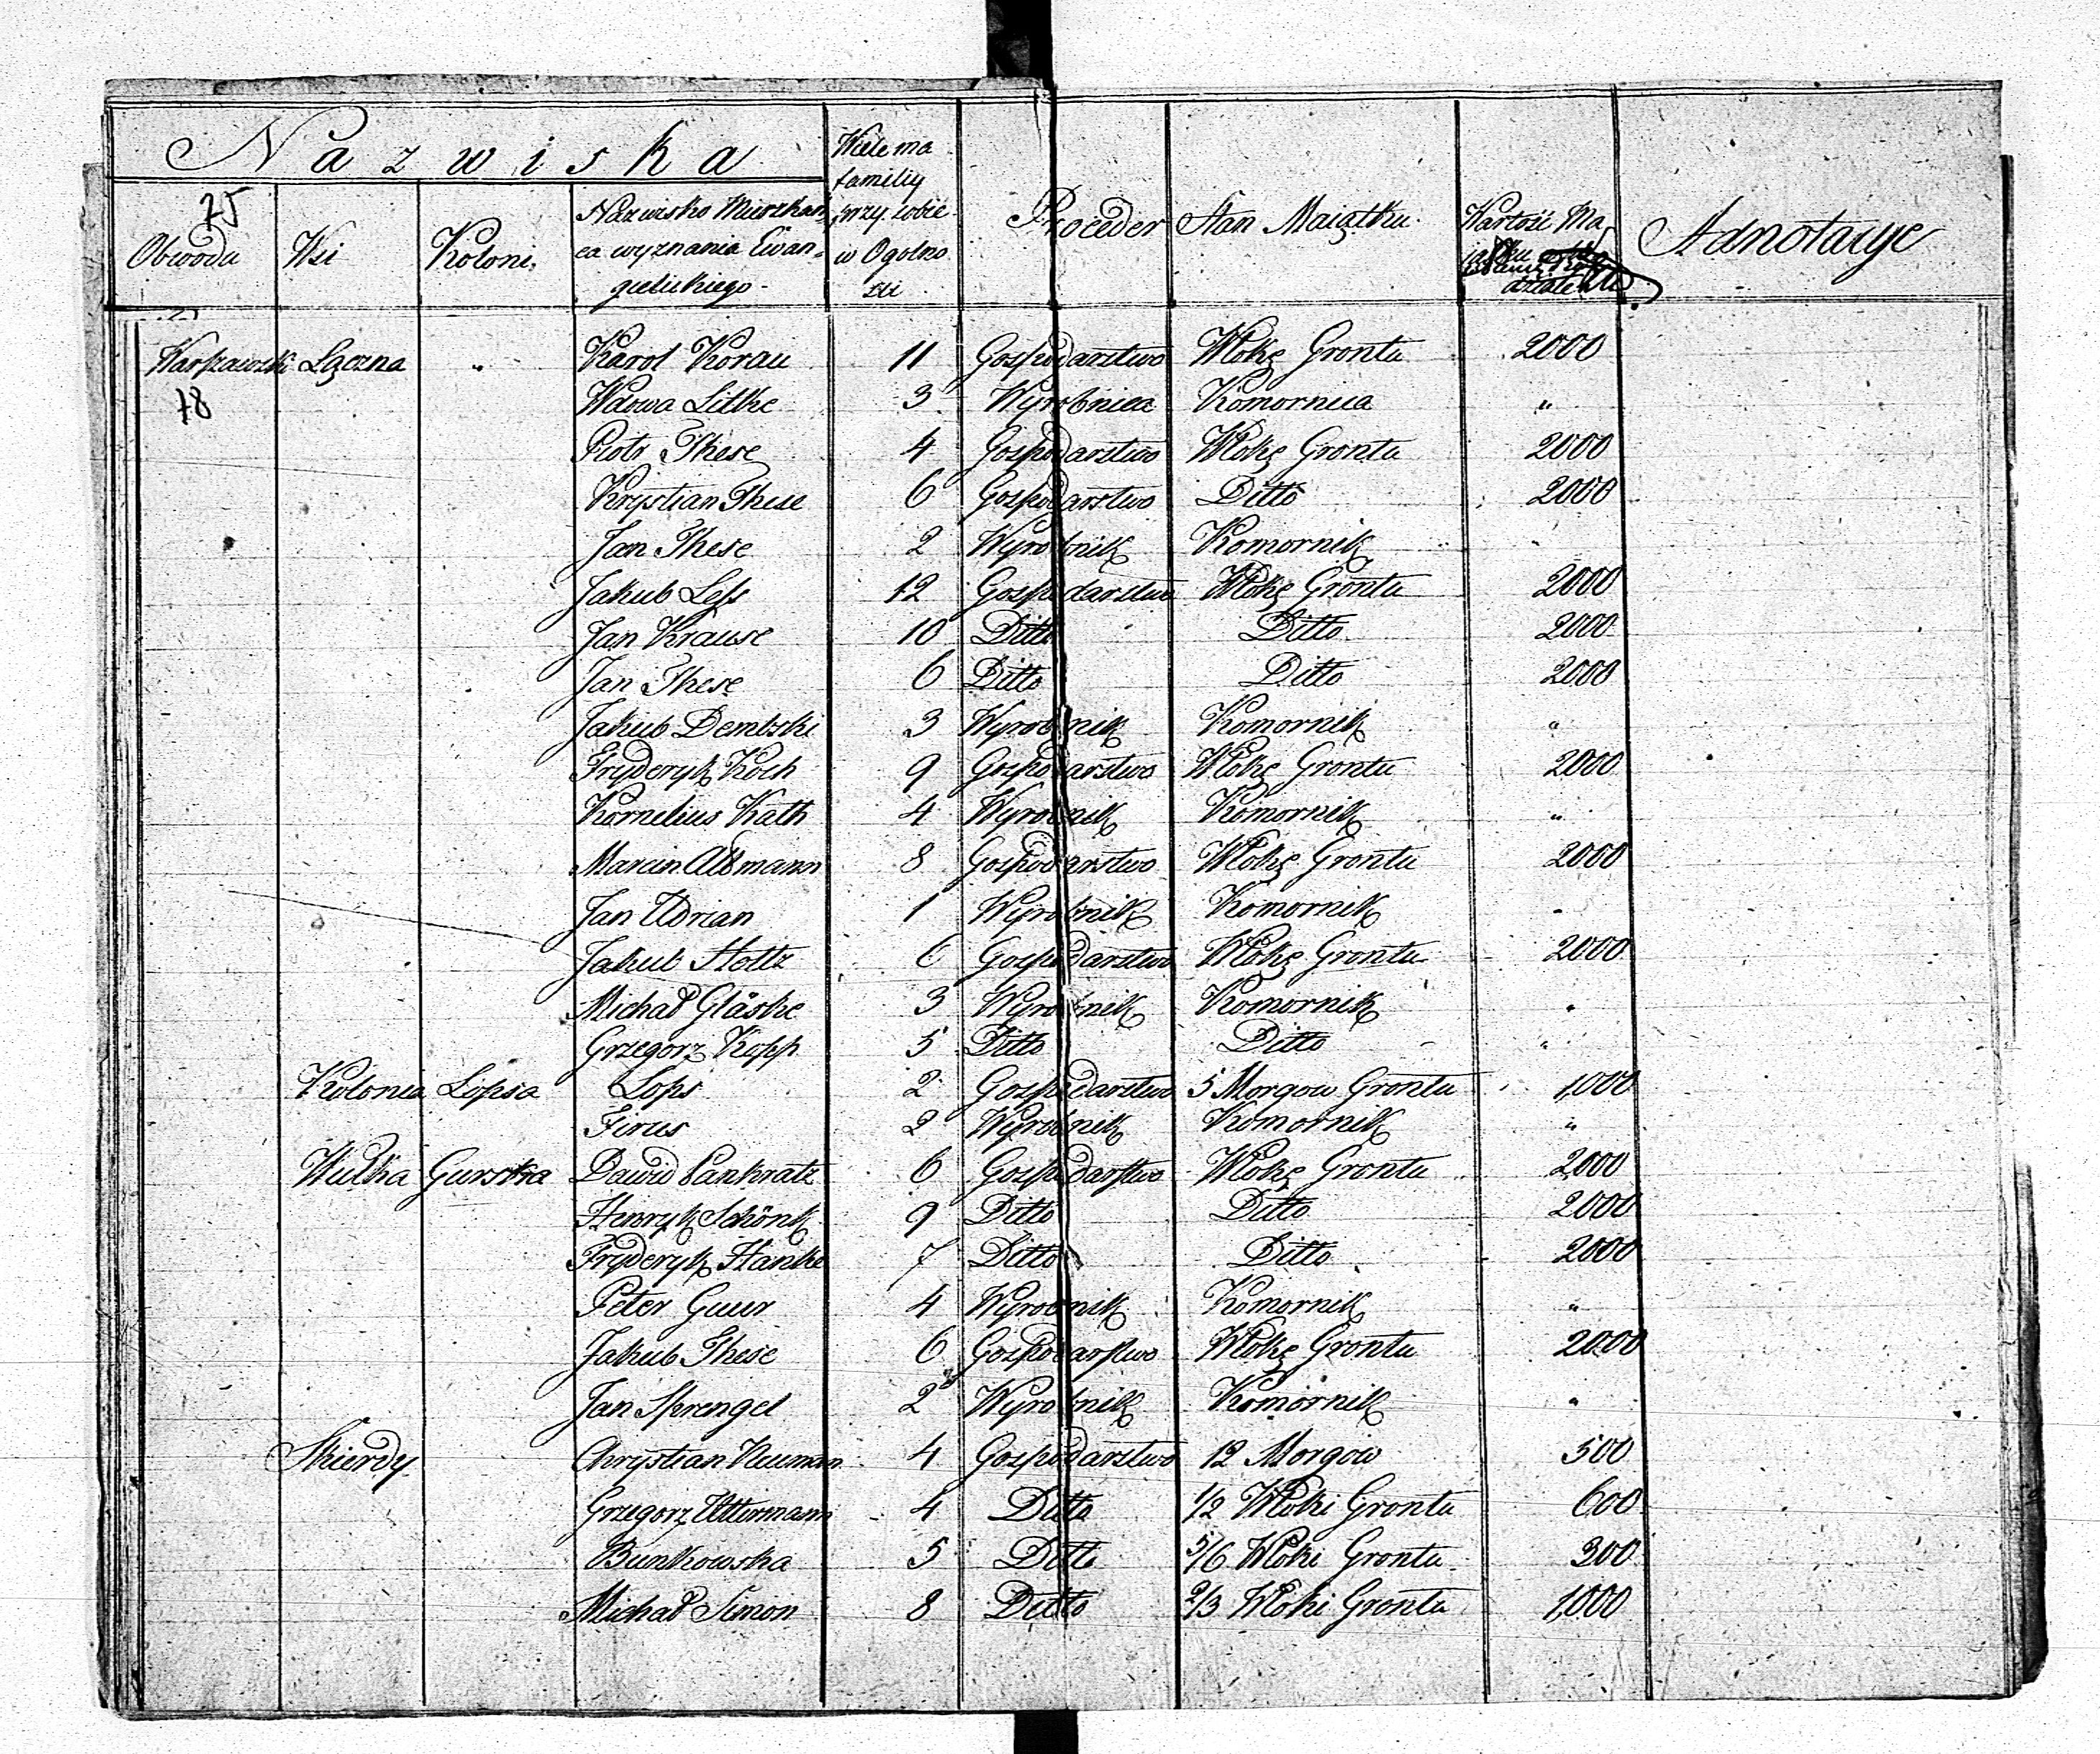 Nazwiska
75
Obwodu Wsi Koloni Nazwisko Mieszkań
ca wyznania Ewan=
gielickiego
Wiele ma
familiy
przy sobie
w Ogolno
sci
Proceder Stan Maiątku Wartość Ma
Adnotacye
Warszawski Łączna " Karol Korau 11 Gospodarstwo Włokę Gruntu 2000
78 Wdowa Litke 3 Wyrobnica Komornica "
Piotr These 4 Gospodarstwo Włokę Gruntu 2000
Krystian These 6 Gospodarstwo Ditto 2000
Jan These 2 Wyrobnik Komornik "
Jakub Less 12 Gospodarstwo Włokę Gruntu 2000
Jan Krause 10 Ditto Ditto 2000
Jan These 6 Ditto Ditto 2000
Jakub Dembski 3 Wyrobnik Komornik "
Fryderyk Koch 9 Gospodarstwo Włokę Gruntu 2000
Kornelius Kath 4 Wyrobnik Komornik "
Marcin Altmann 8 Gospodarstwo Włokę Gruntu 2000
Jan Adrian 1 Wyrobnik Komornik "
Jakub Holtz 6 Gospodarstwo Włokę Gruntu 2000
Michał Gläske 3 Wyrobnik Komornik "
Grzegorz Kopp 5 Ditto Ditto "
Kolonia Lopsa Lops 2 Gospodarstwo 5 Morgow Gruntu 1,000
Firus 2 Wyrobnik Komornik "
Wulka Gurska Dawid Pankratz 6 Gospodarstwo Włokę Gruntu 2000
Henryk Schönk 9 Ditto Ditto 2000
Fryderyk Hanke 7 Ditto Ditto 2000
Peter 4 Wyrobnik Komornik "
Jakub These 6 Gospodarstwo Włokę Gruntu 2000
Jan Sprengel 2 Wyrobnik Komornik "
Skierdy Chrystian Neuman 4 Gospodarstwo 12 Morgow 500
Grzegorz 4 Ditto 1/2 Włoki Gruntu 600
Bunkowska 5 Ditto 5/6 Włoki Gruntu 300
Michał Simon 8 Ditto 2/3 Włoki Gruntu 1,000